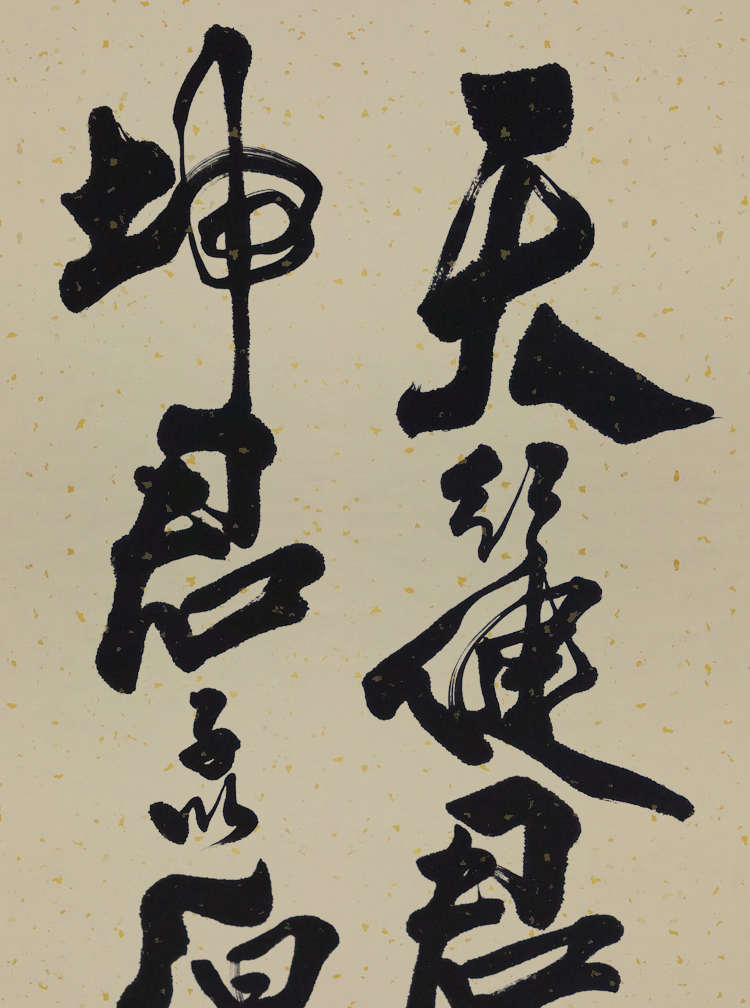 天行健君
坤君子以厚